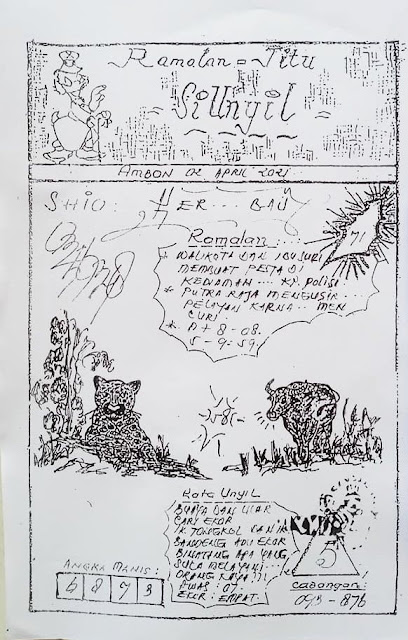 Ramalan = Jitu
Si Unyil
AMBON 02 APRIL 2021
SHIO
HER... BAU
71
Ramalan
* WALIKOTA DAN
MEMBUAT PESTA DI
KEDIAMAN .... KA. POLISI
* PUTRA RAJA MENGUSIR ...
PELAYAN KARNA .. MEN
CURI
* A + 8 - 08.
5 - 9 = 59.
Kata Unyil
BUAYA DAN ULAR
CARI EKOR
IK TONGKOL DAN IK
BANDENG ADU EKOR
BINATANG APA YANG
SUKA MELAYANI ...
ORANG KAYA ?!
AWAS : 07
EKOR : EMPAT.
5
ANGKA MANIS :
6 8 7 3
Cadangan :
093 - 876